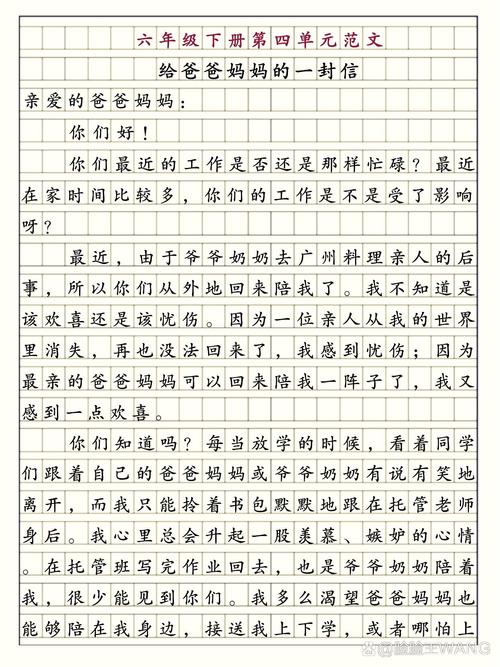 六年级下册第四单元范文
给爸爸妈妈的一封信
亲爱的爸爸妈妈：
你们好！
你们最近的工作是否还是那样忙碌？最近
在家时间比较多，你们的工作是不是受了影响
呀？
最近，由于爷爷奶奶去广州料理亲人的后
事，所以你们从外地回来陪我了。我不知道是
该欢喜还是该忧伤。因为一位亲人从我的世界
里消失，再也没法回来了，我感到忧伤；因为
最亲的爸爸妈妈可以回来陪我一阵子了，我又
感到一点欢喜。
你们知道吗？每当放学的时候，看着同学
们跟着自己的爸爸妈妈或爷爷奶奶有说有笑地
离开，而我只能拎着书包默默地跟在托管老师
身后。我心里总会升起一股羡慕、嫉妒的心情
。在托管班写完作业回去，也是爷爷奶奶陪着
我，很少能见到你们。我多么渴望爸爸妈妈也
能够陪在我身边，接送我上下学，或者哪怕上
@脸脸王WANG